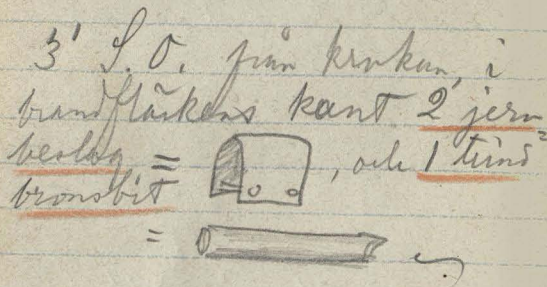 3' S.O. från krukan, i
brandfläckens kant 2 jern=
beslag = , och 1 tund
bronsbit
=